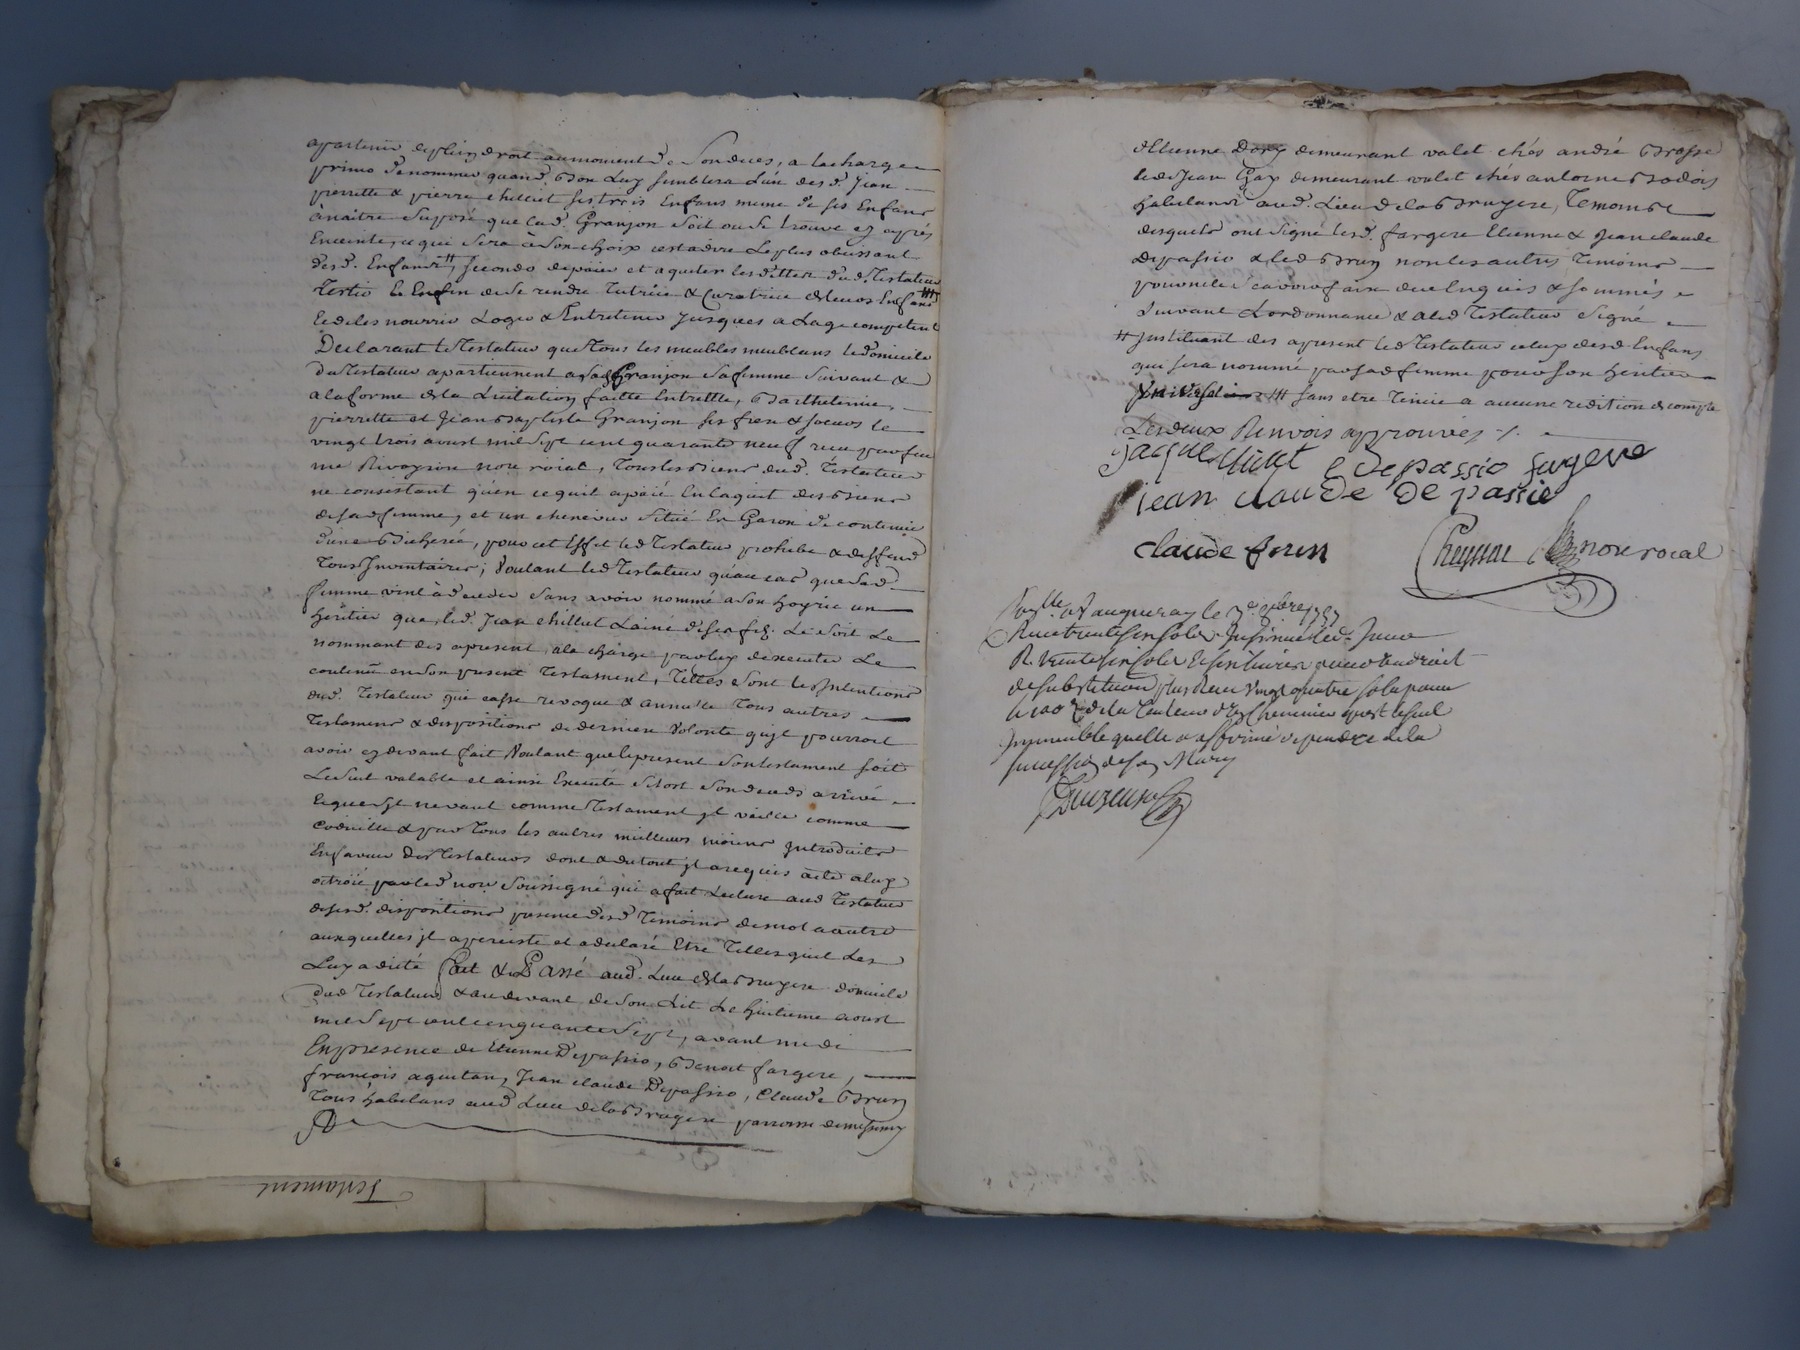 apartenir de plein droit au moment de Son deces, a la charge
primo de nommer quand Bon Luy semblera L'un desd. Jean
pierrette & pierre chilliet ses trois Enfans meme de ses Enfans
à naitre Supposé que lad. Granjon Soit ou Se trouve cy après
Enceinte, ce qui Sera à Son choix cest adire Le plus obeissant
desd. Enfans #, Secondo de païer et aquiter les dettes dud. Testateur
Tertio & Enfin de Se rendre Tutrice & Curatrice de leurs Enfans ####
& de les nourrir Loger & Entretenir jusques a L'age competent
Declarant le Testateur que Tous les meubles meublans le Domicile
du Testateur apartiennent a lad. Granjon Sa femme Suivant &
a la forme de la Licitation faitte Entrelle, Barthelemie,
pierrette et Jean Baptiste Granjon ses frere & soeurs le
vingt trois aoust mil Sept cent quarante neuf reçu par feu
me Rivoyron nore roial, Tous les Biens dud. Testateur
ne consistant qu'en ce qu'il a païé En l'aquit des Biens
de sad femme, et un chenevier Situé En Garon de contenue
d'une Bicherée, pour cet Effet led Testateur prohibe & deffend
Tous Inventaires; Voulant led Testateur qu'au cas que Sad
femme vint à deceder Sans avoir nommé a Son Hoyrie un
Heritier que led. Jean chilliet L'ainé de ses fils Le Soit Le
nommant des apresent, a la charge par luy d'executer Le
contenu en Son present Testament, Telles Sont les Intentions
dud. Testateur qui casse revoque & annulle Tous autres
Testamens & dispositions de derniere Volonté qu'jl pourroit
avoir cy devant fait Voulant que le present Son testament soit
Le Seul valable et ainsi Executé Sitost Son deceds arrivé
Et que S'jl ne vaut comme Testament jl vaille comme
Codicille & par Tous les autres meilleurs moiens jntroduits
En faveur des Testateurs dont & du tout jl a requis acte a luy
octroïé par led nore Soussigné qui a fait Lecture aud Testateur
de sesd. dispositions presence desd Temoins de mot a autre
auxquelles jl a persisté et a declaré Etre Telles qu'il Les
Luy a dicté fait & Passé aud. Lieu de la Bruyere domicile
dud Testateur & au devant de Son Lit Le Huitieme aoust
mil Sept cent cinquante Sept, avant midi
En presence de Etienne Depassio, Benoit fargere,
françois aquitan, Jean claude Depassio, Claude Brun
Tous Habitans aud Lieu de la Bruyere parroisse de messimy
Testament
d'Etienne Dory demeurant valet chés andré Brosse
& de Jean Gay demeurant valet chés antoine Brodois
Habitans aud. Lieu de la Bruyere, Temoins
desquels ont Signé lesd. fargere Etienne & Jean claude
Depassio & led Brun non les autres Temoins
pour ne le Scavoir faire de ce Enquis & sommés
Suivant L'ordonnance & a led Testateur Signé
# Instituant des apresent led Testateur celuy desd. Enfans
qui sera nommé par sad femme pour son Heritier
Universel #### sans etre Tenüe a aucune redition de compte
Les deux Renvois approuvés
Jacque chiliet e Depassio fargere
jean claude De passio
claude brun
nore roial
a Vaugneray le
Reçu trente six sols
R. trente six sols
de substitution plus Reçu Vingt quatre sols pour
le 100e de la valeur d'un Chenevier qui est le seul
Immeuble quelle a affirmé dependre de la
succession de son Mary